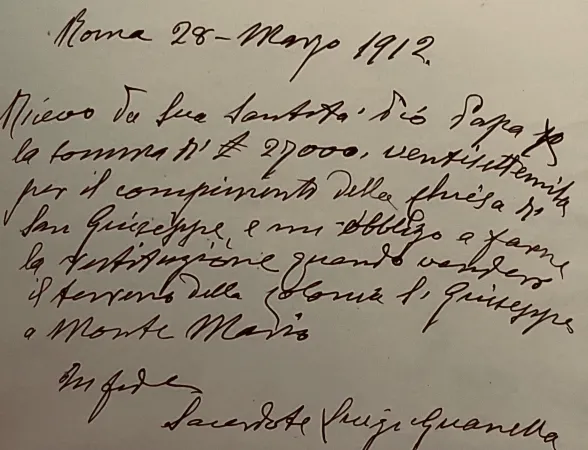 Roma 28 - Marzo 1912.
Ricevo da Sua Santità Pio Papa
la somma di £ 27000, ventisettemila
per il compimento della Chiesa di
San Giuseppe e mi obbligo a farne
la restituzione quando venderò
il terreno della Colonia S. Giuseppe
a Monte Mario
In fede
Sacerdote Luigi Guanella